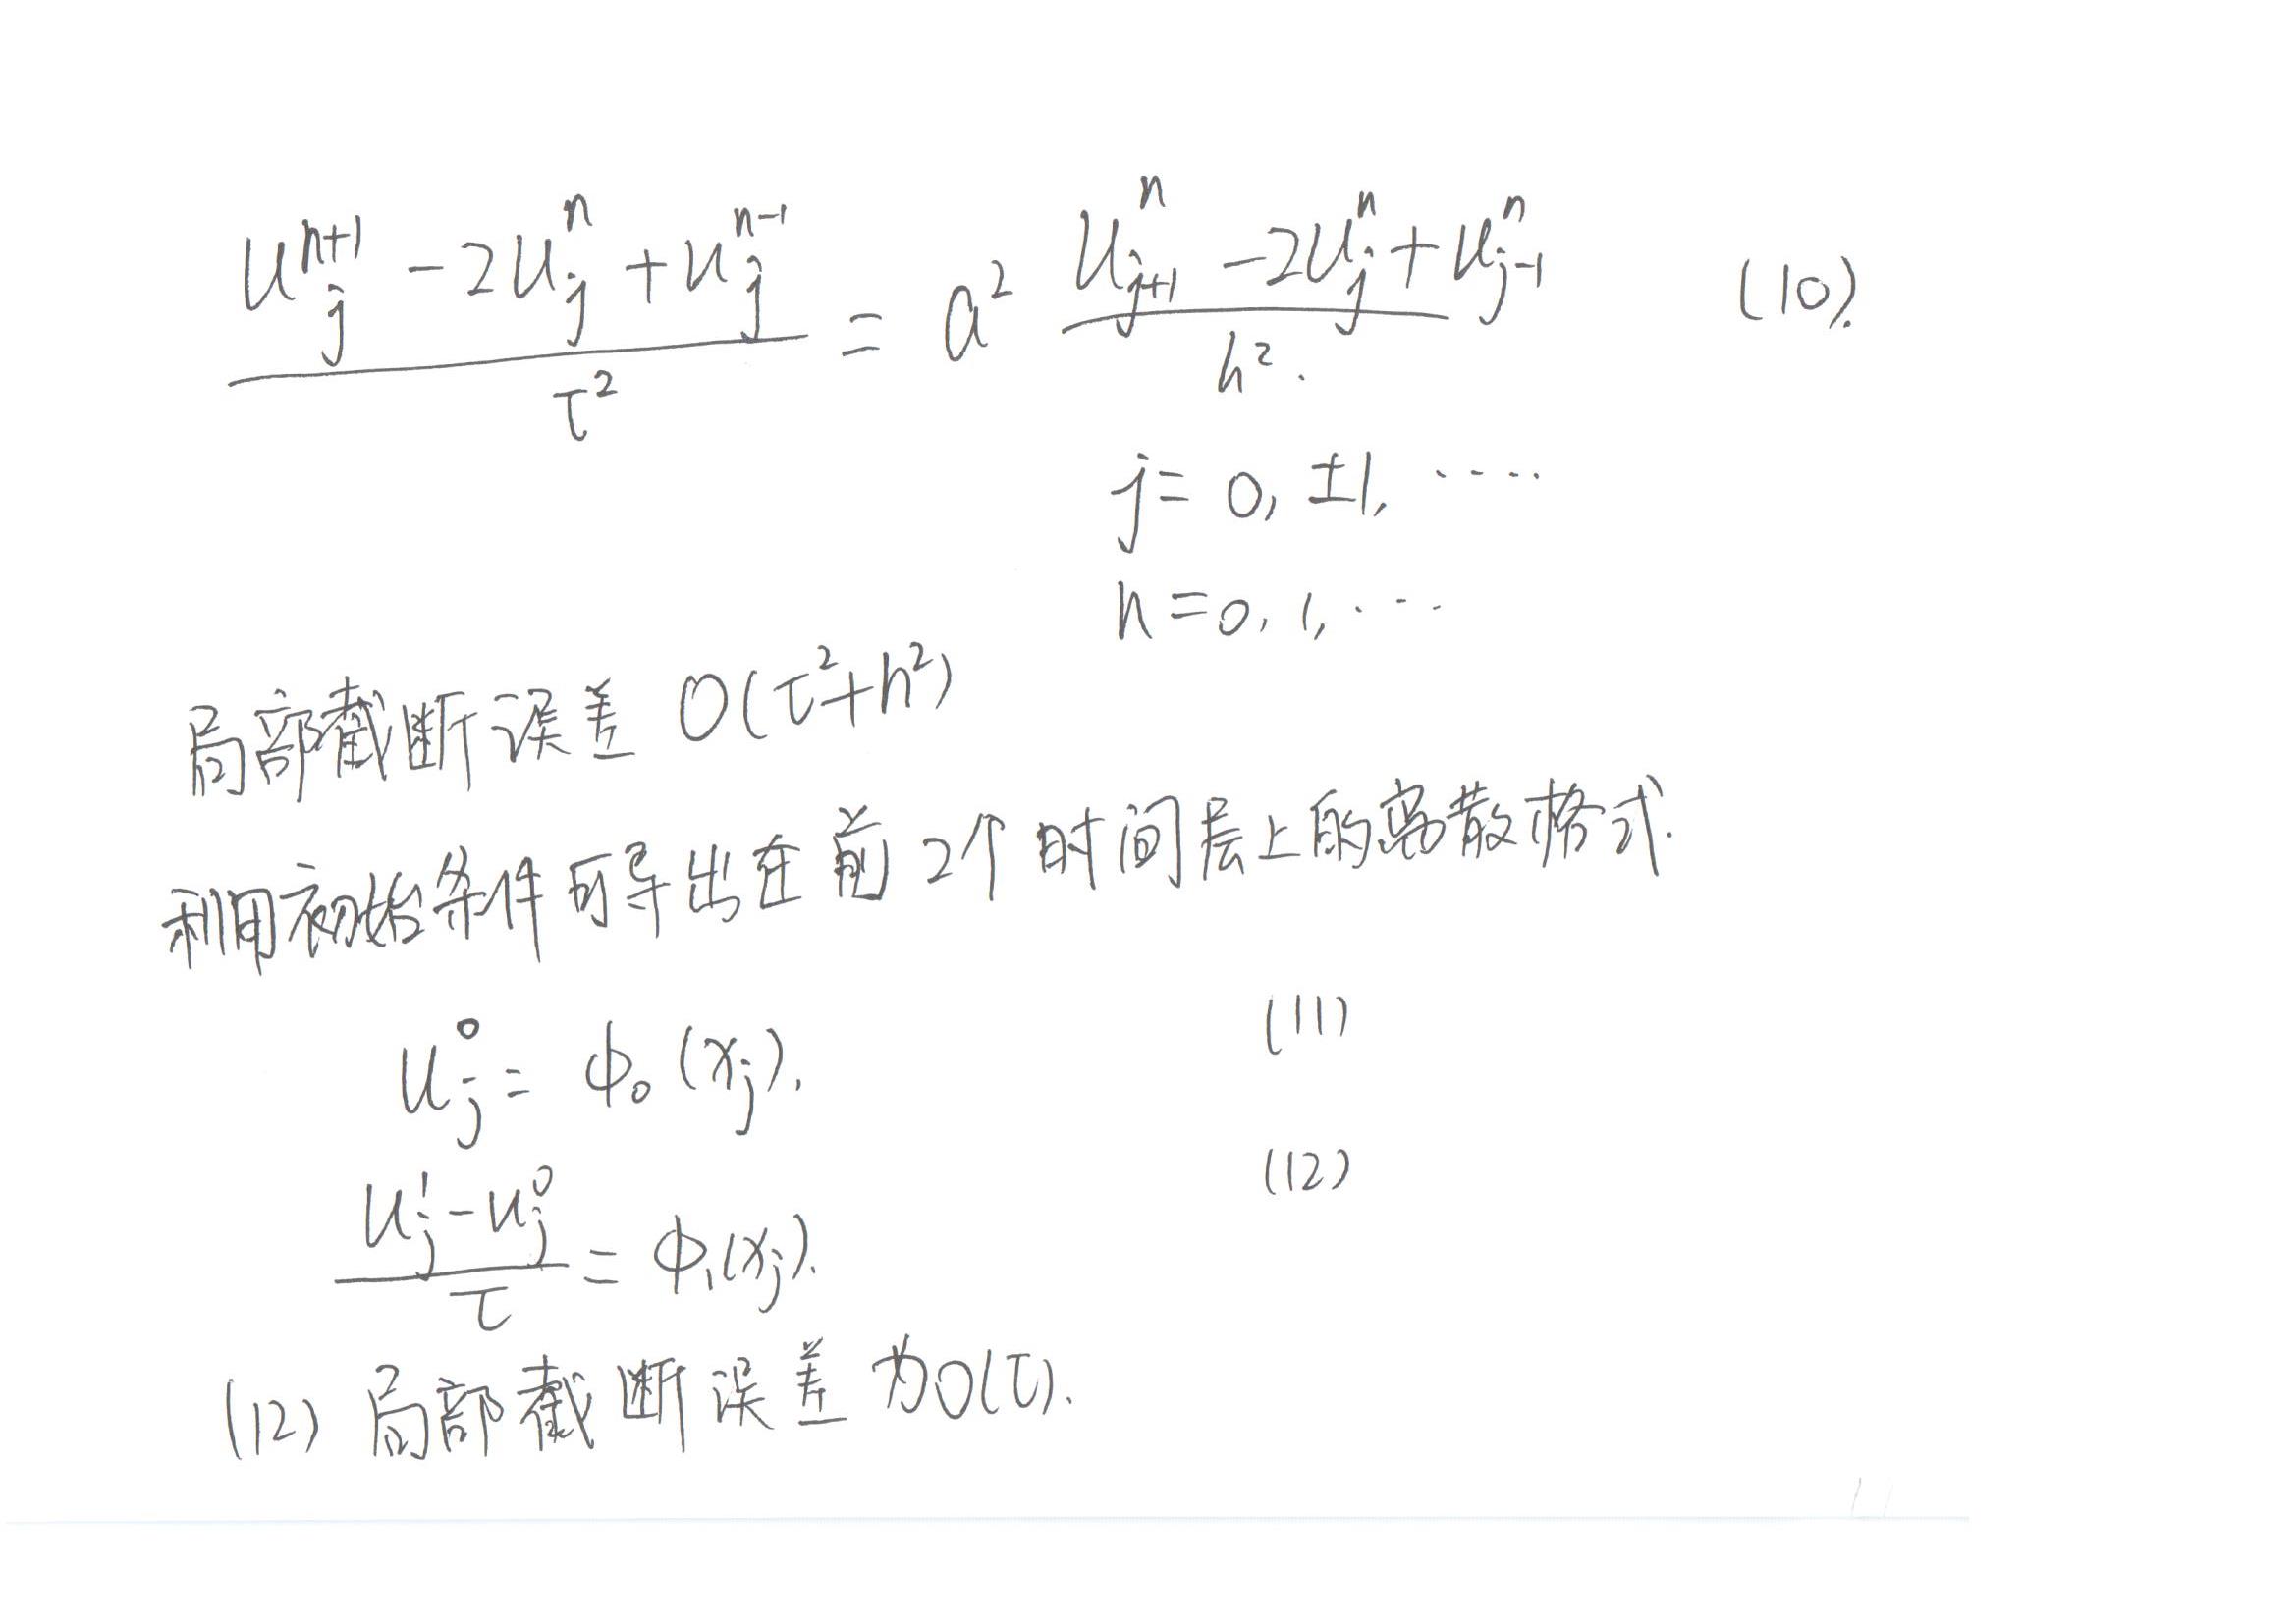 $\frac{u_j^{n+1} - 2u_j^n + u_j^{n-1}}{\tau^2} = a^2 \frac{u_{j+1}^n - 2u_j^n + u_{j-1}^n}{h^2}.$ (10).
$j = 0, \pm 1, \cdots\cdot$
$n = 0, 1, \cdots$
局部截断误差 $O(\tau^2 + h^2)$
利用初始条件可导出在前2个时间层上的离散格式.
$u_j^0 = \phi_0(x_j).$ (11)
$\frac{u_j^1 - u_j^0}{\tau} = \phi_1(x_j).$ (12)
(12) 局部截断误差为$O(\tau)$.